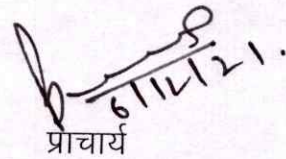 6/12/21.
प्राचार्य